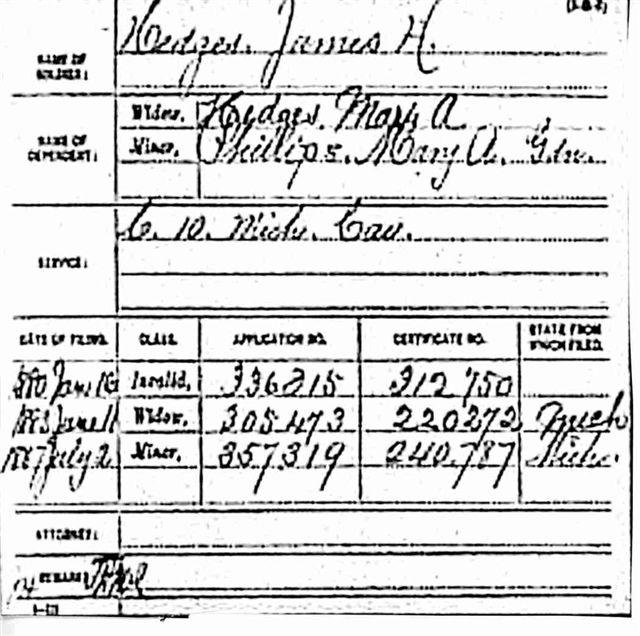 Hedges, James H.
NAME OF SOLDIER:
Widow, Hedges, Mary A.
NAME OF DEPENDENT: Minor, Phillips, Mary A. Gdn.
C. 10. Mich. Cav.
SERVICE:
DATE OF FILING. CLASS. APPLICATION NO. CERTIFICATE NO. STATE FROM WHICH FILED.
1880 Jan 16 Invalid, 336315 312750
June 11 Widow, 305473 220272 Mich
1887 July 2 Minor, 357319 240787 Mich.
ATTORNEY:
REMARKS: